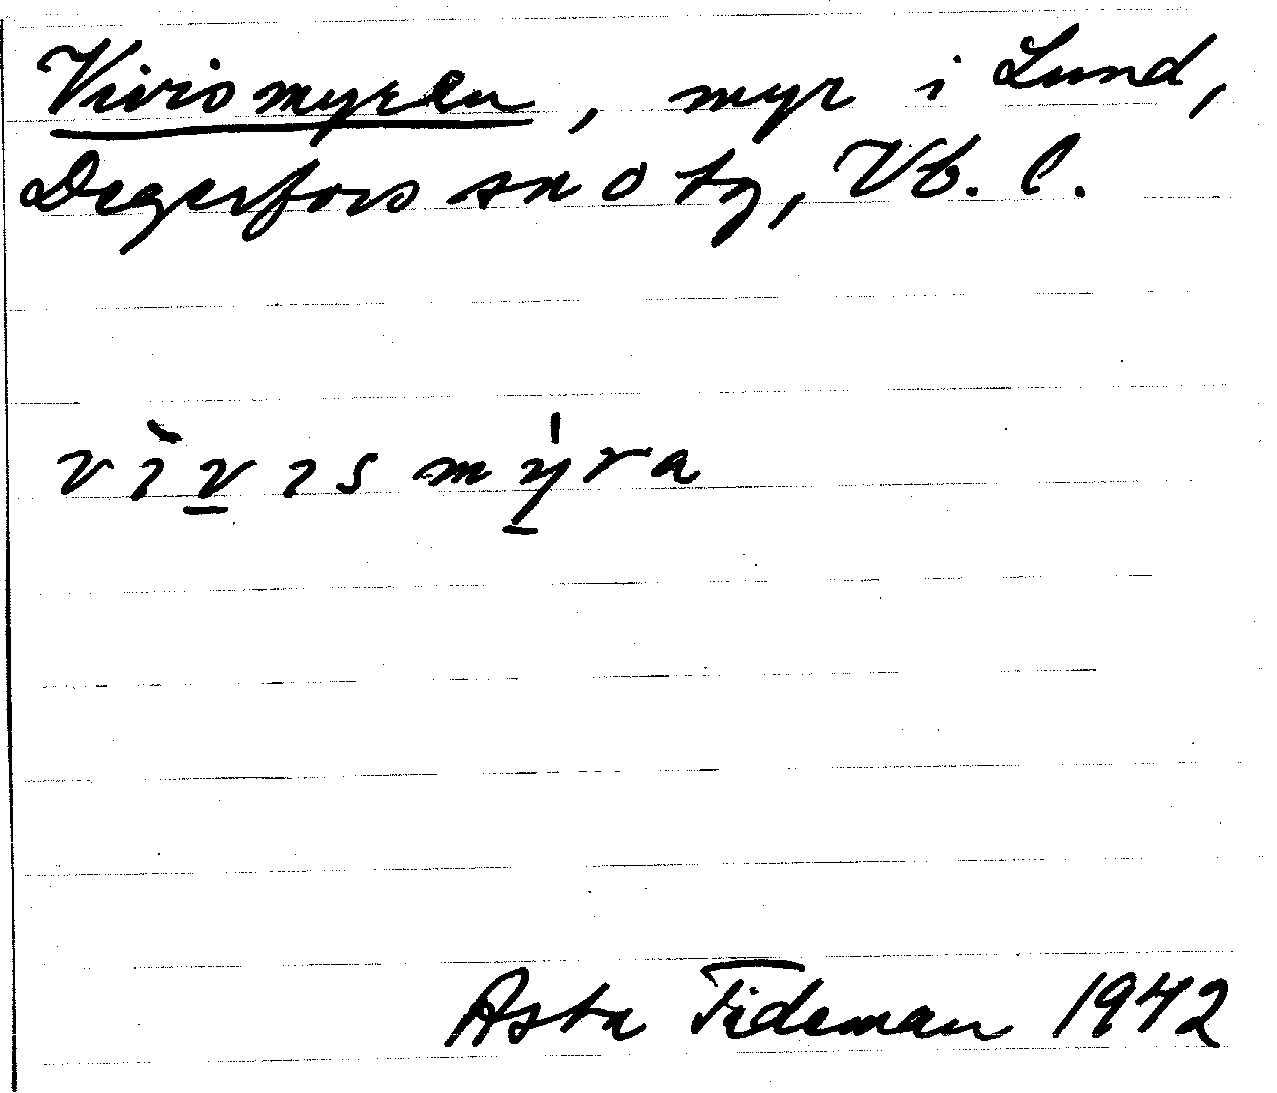 Vivismyran, myr i Lund,
Degerfors sn o tg, Vb. l.
vìvɩsmy̍ra
Asta Tideman 1942